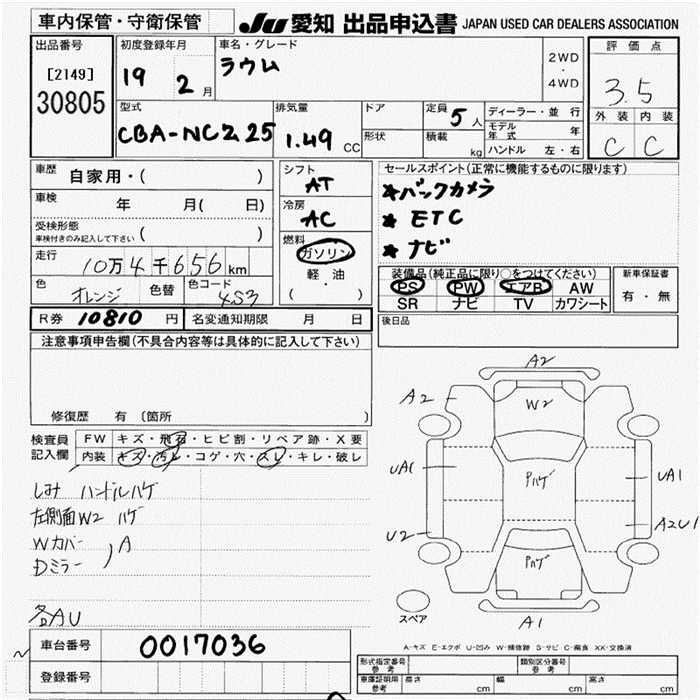 車内保管・守衛保管 JU 愛知 出品申込書 JAPAN USED CAR DEALERS ASSOCIATION
出品番号 初度登録年月 車名・グレード 評価点
[2149] 19 2月 ラウム 2WD・4WD 3.5
30805
型式 排気量 ドア 定員 5人 ディーラー・並行 外装 内装
CBA-NCZ25 1.49 CC 形状 積載 kg モデル年式 年 C C
ハンドル 左・右
車歴 自家用・( ) シフト AT セールスポイント(正常に機能するものに限ります)
車検 年 月( 日) 冷房 AC ★バックカメラ
受検形態 ★ ETC
車検付きのみ記入して下さい 燃料 ガソリン ★ ナビ
走行 10万4千656km 軽・油 装備品(純正品に限り○をつけてください) 新車保証書
色 オレンジ 色替 色コード 4S3 ( ・ ) PS PW エアB AW 有・無
SR ナビ TV カワシート
R券 10810 円 名変通知期限 月 日 後日品
注意事項申告欄(不具合内容等は具体的に記入して下さい)
修復歴 有(箇所 )
検査員 FW キズ・飛石・ヒビ割・リペア跡・X要
記入欄 内装 キズ・汚れ・コゲ・穴・スレ・キレ・破レ
しみ ハンドルハゲ
左側面W2 ハゲ
Wカバー
Dミラー ) A
各AU
A2
A2 W2
UA1 Pハゲ UA1
U2 A2U1
Pハゲ
スペア A1
A-キズ E-エクボ U-凹み W-補修跡 S-サビ C-腐食 XX-交換済
車台番号 0017036 形式指定番号 参考 類別区分番号 参考
登録番号 車庫証明用 参考 長さ cm 幅 cm 高さ cm